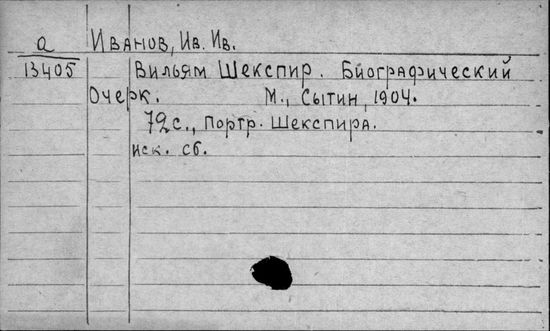 а Иванов, Ив. Ив.
13405 Вильям Шекспир. Биографический
Очерк. М., Сытин, 1904.
72 с., портр. Шекспира.
иск. сб.